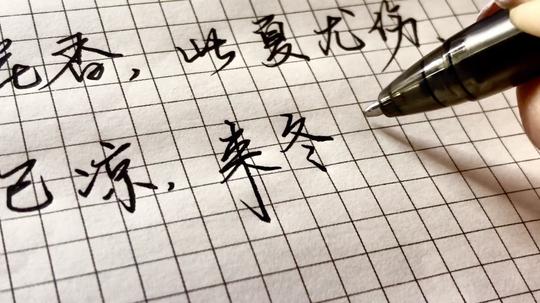 花香，此夏尤伤，
已凉，来冬